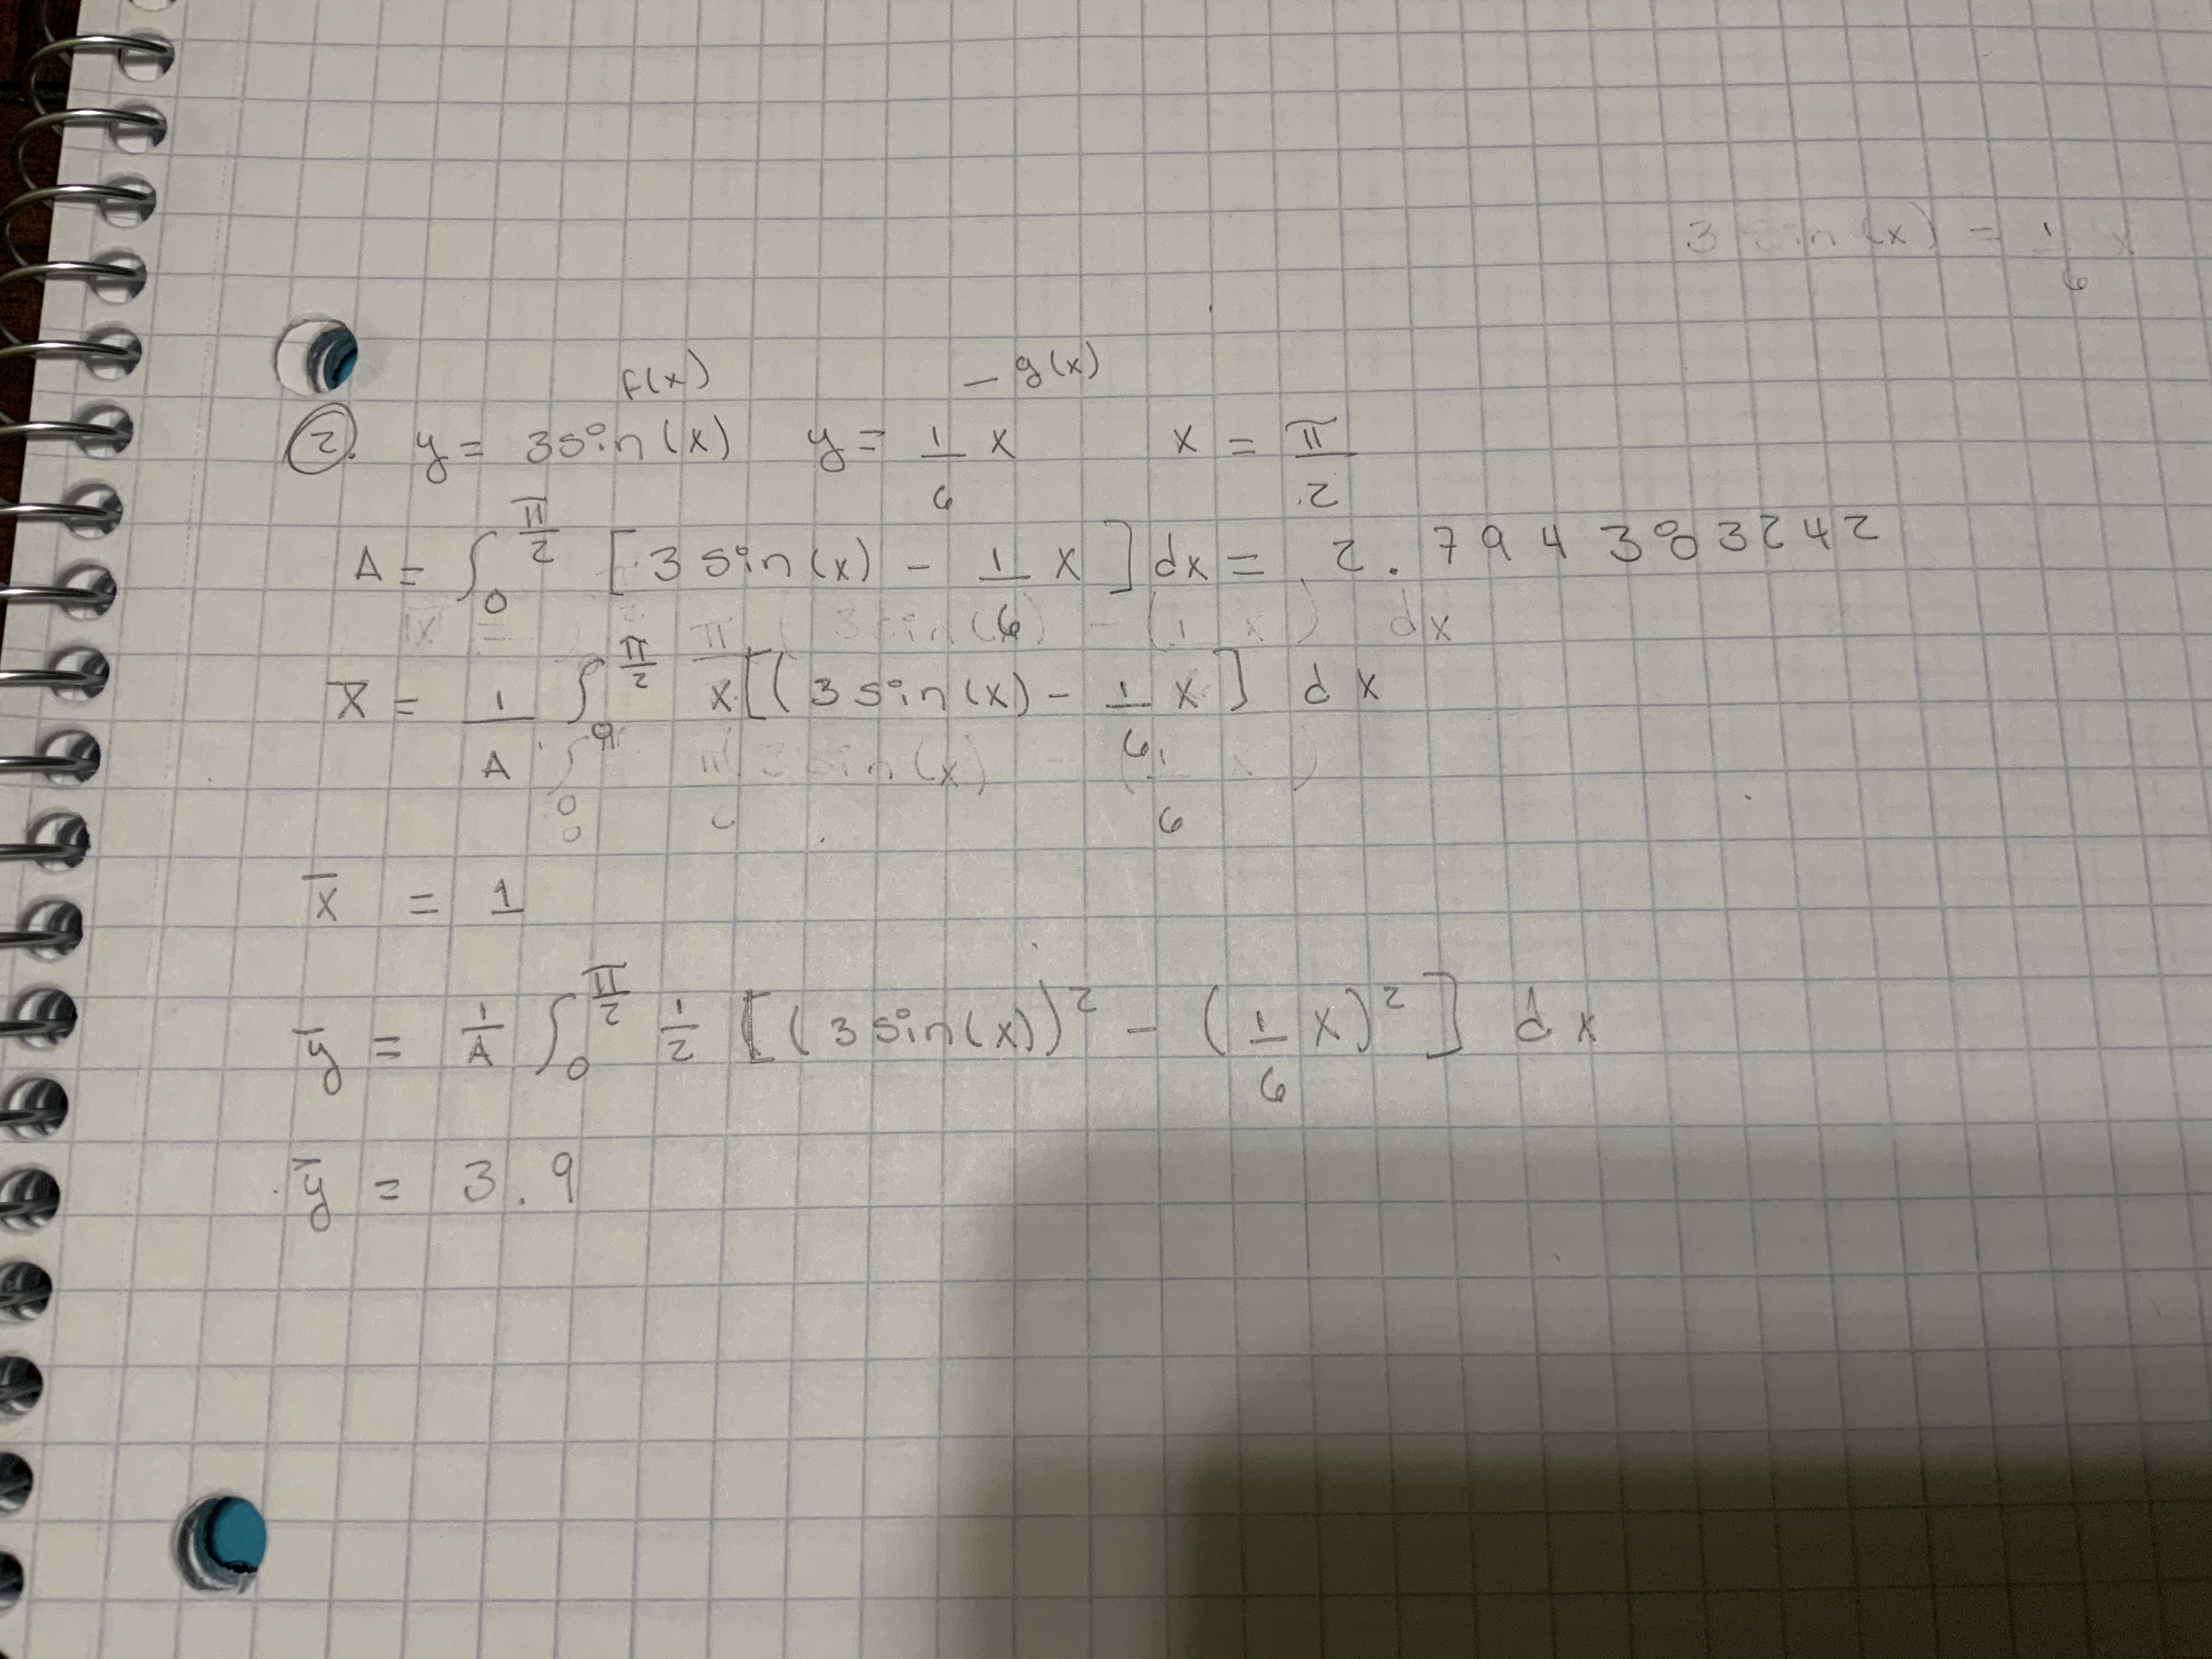 3 sin(x) = 1/6 x
f(x) - g(x)
2. y = 3sin(x) y = 1/6 x x = π/2
A = ∫₀^(π/2) [3 sin(x) - 1/6 x] dx = 2.7943803242
3 sin( ) - (1 x) dx
x̄ = 1/A ∫₀^(π/2) x[(3 sin(x) - 1/6 x] dx
3 sin(x) - (1/6 x)
x̄ = 1
ȳ = 1/A ∫₀^(π/2) 1/2 [(3 sin(x))² - (1/6 x)²] dx
ȳ = 3.9